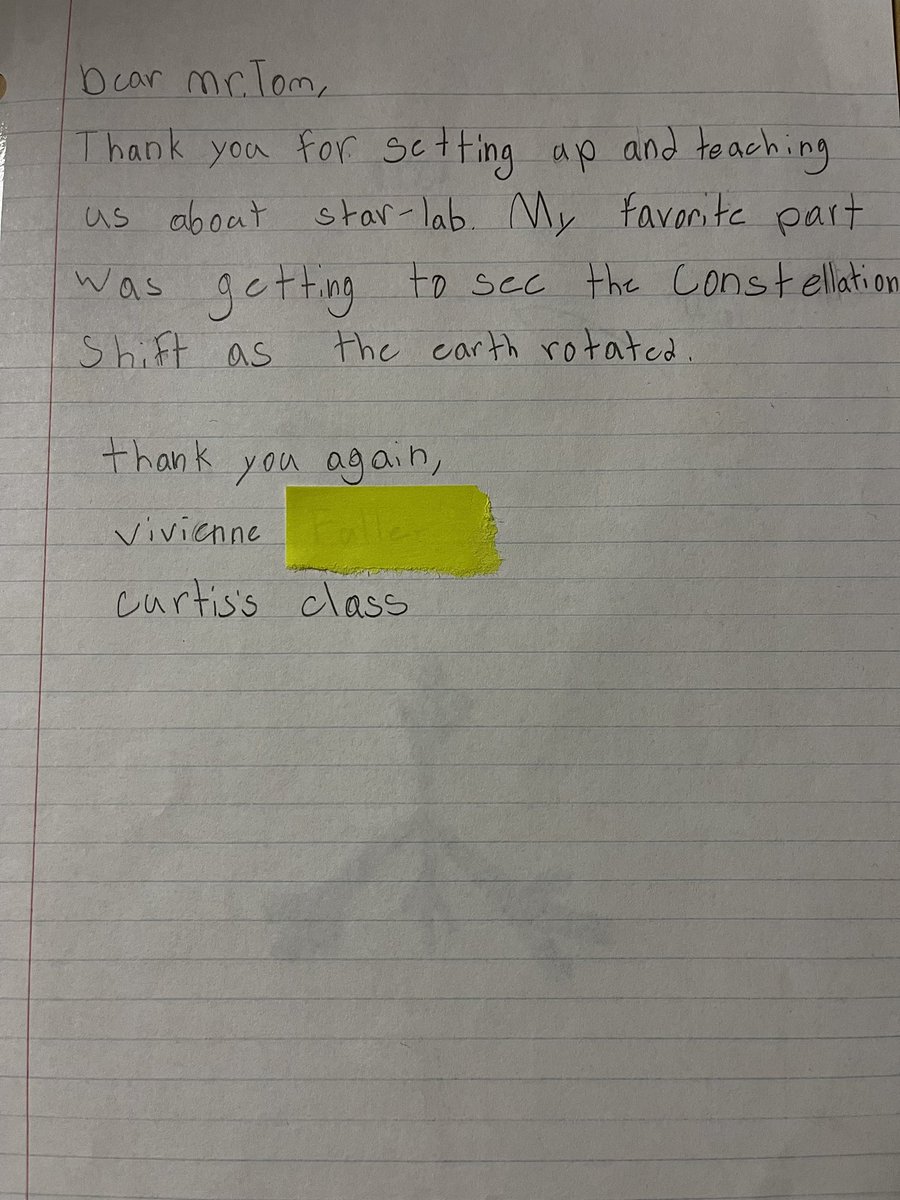 Dear mr. Tom,
Thank you for setting up and teaching
us about star-lab. My favorite part
was getting to see the Constellation
Shift as the earth rotated.
thank you again,
vivienne
curtis's class